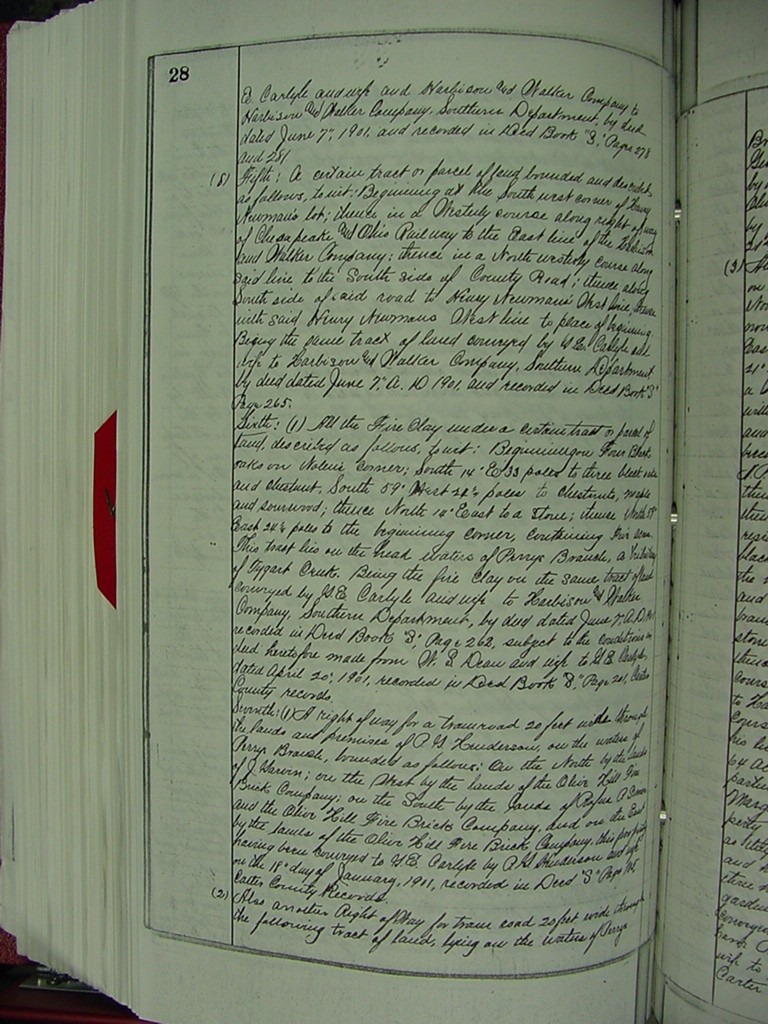 28
E. Carlyle and wife and Harbison and Walker Company to
Harbison and Walker Company, Southern Department, by deed
dated June 7", 1901, and recorded in Deed Book "S," Page 278
and 281
(5) Fifth: A certain tract or parcel of land bounded and described
as follows, to wit: Beginning at the South west corner of Henry
Newman's lot; thence in a Westerly course along right of way
of Chesapeake and Ohio Railway to the East line of the Harbison
and Walker Company; thence in a North westerly course along
said line to the South side of County Road; thence, along
South side of said road to Henry Newman's West line, thence
with said Henry Newmans West line to place of beginning.
Being the same tract of land conveyed by J.E. Carlyle and
wife to Harbison and Walker Company, Southern Department
by deed dated June 7," A. D 1901, and recorded in Deed Book "S"
Page 265.
Sixth: (1) All the Fire Clay under a certain tract or parcel of
land, described as follows, to wit: Beginning on Four Black
oaks on corner; South 14° E 33 poles to three black oaks
and chestnut, South 59° West 24½ poles to Chestnuts, maple
and sourwood; thence North 14° East to a Stone; thence North 59°
East 24½ poles to the beginning corner, containing five acres.
This tract lies on the head waters of Perrys Branch, a tributary
of Tygart Creek. Being the fire clay on the same tract of land
conveyed by J.E. Carlyle and wife to Harbison and Walker
Company, Southern Department, by deed dated June 7," A.D.
recorded in Deed Book "S," Page 262, subject to the conditions in
deed heretofore made from W. S Dean and wife to J.E. Carlyle,
dated April 20", 1901, recorded in Deed Book "S," Page 201, Carter
County records.
Seventh: (1) A right of way for a tramroad 20 feet wide through
the lands and premises of P.G. Henderson, on the waters of
Perrys Branch, bounded as follows; On the North by the lands
of J. ; on the West by the lands of the Olive Hill Fire
Brick Company; on the South by the lands of Rufus A
and the Olive Hill Fire Bricks Company, and on the East
by the lands of the Olive Hill Fire Brick Company, this property
having been conveyed to J.E. Carlyle by P.G. Henderson and wife
on the 18" day of January, 1901, recorded in Deed "S" Page
Carter County Records.
(2) Also another Right of Way for tram road 20 feet wide through
the following tract of land, lying on the waters of Perrys
(3)
on
by
East
21°
a
with
and
to
his
perty
as
and
wife to
Carter